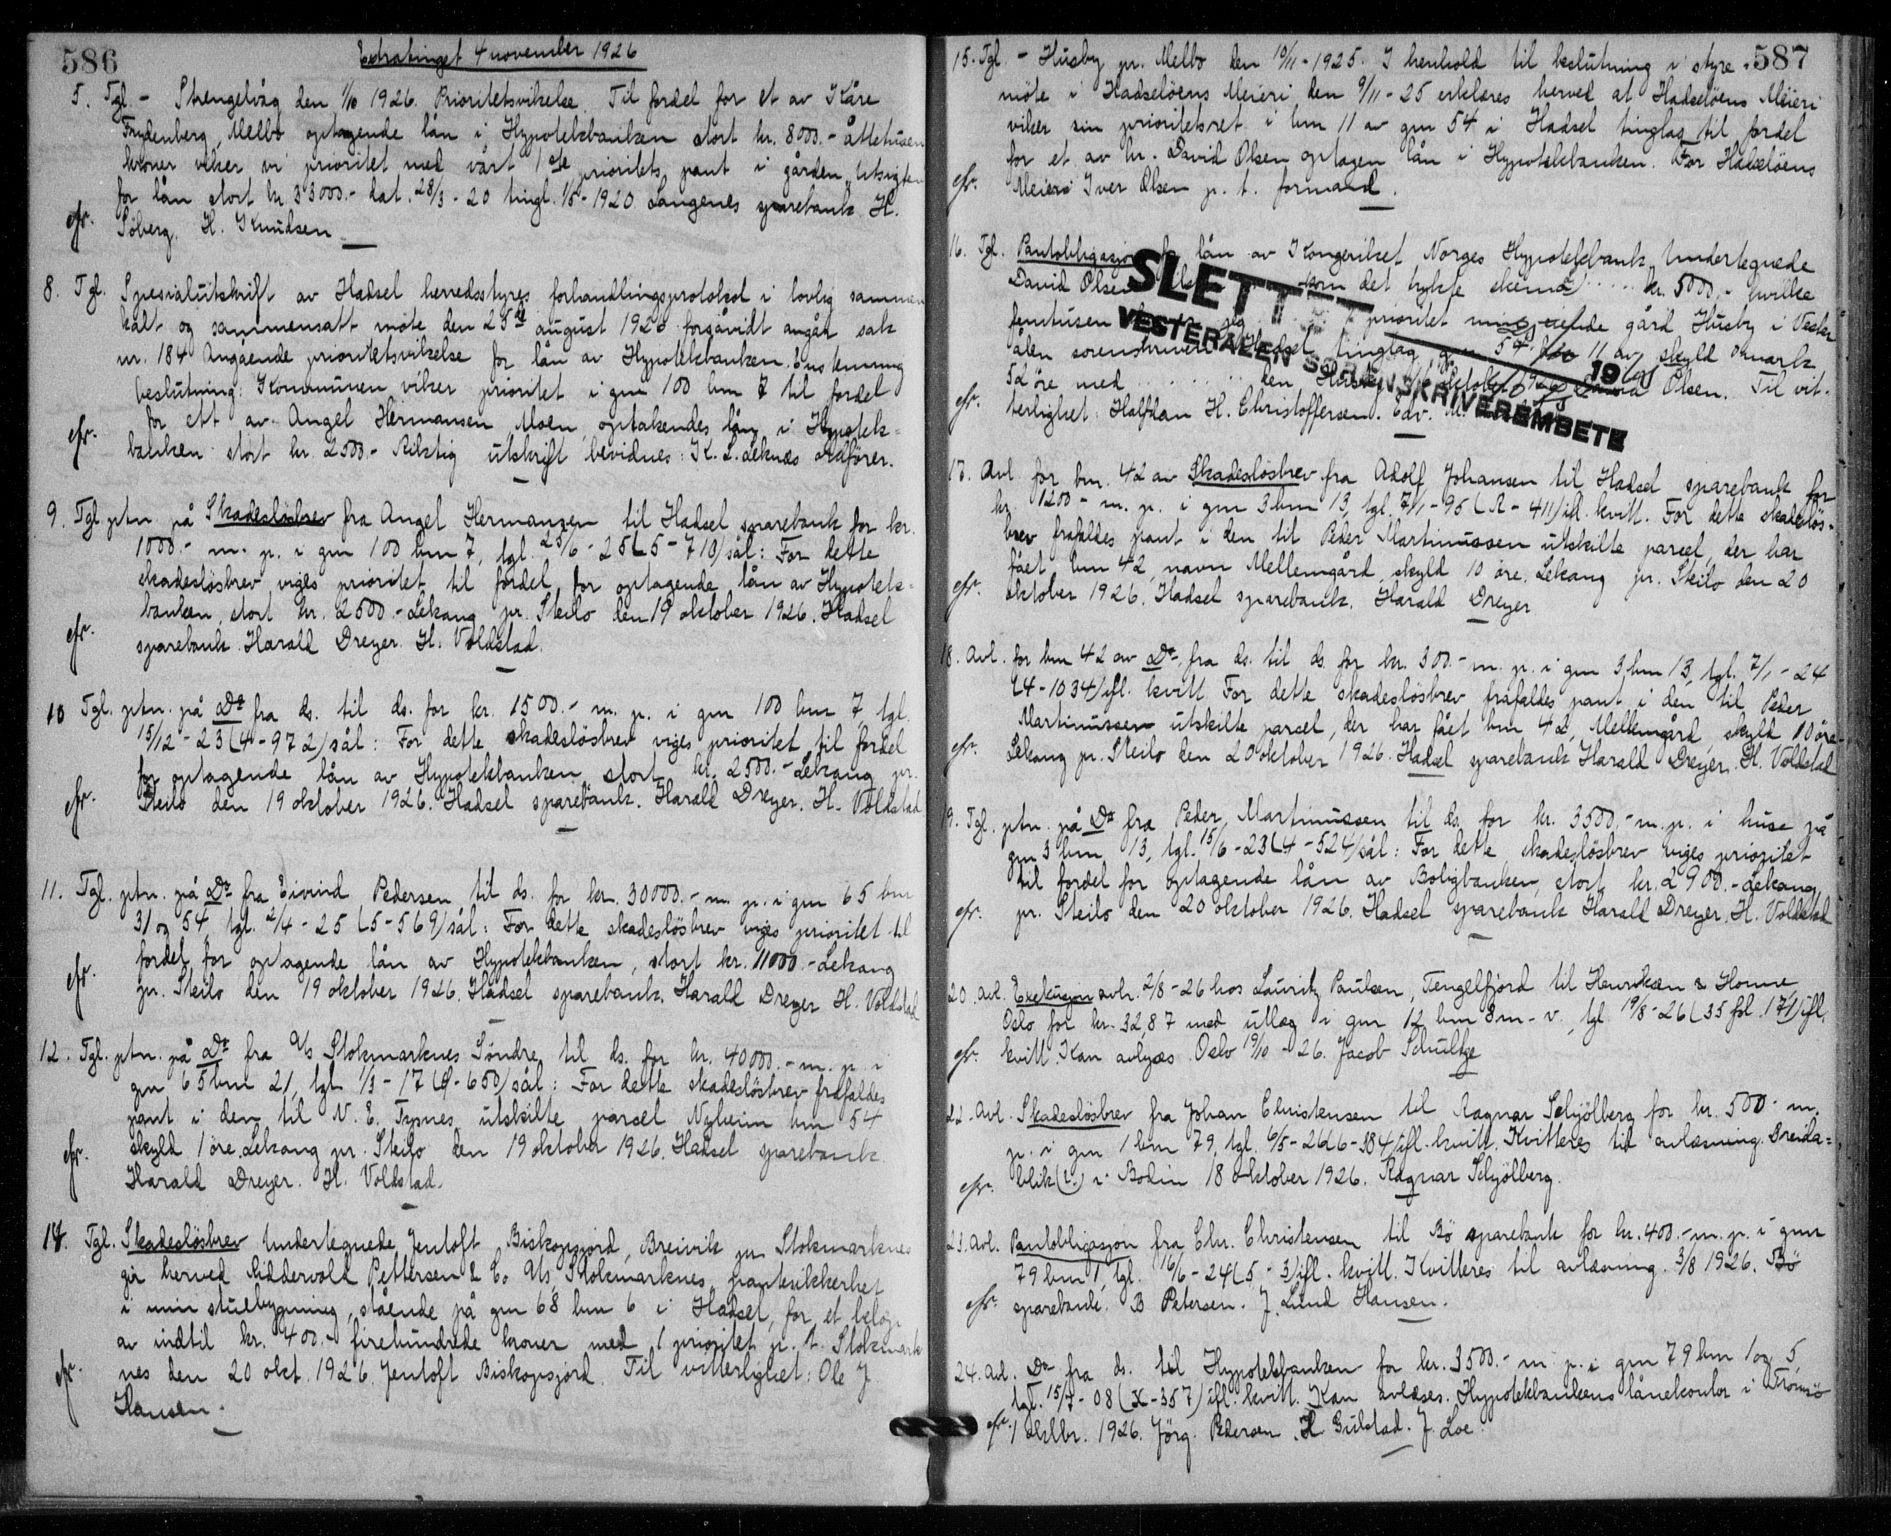 586
Extratinget 4 november 1926
5. Tgl. - Strengelvåg den 1/10 1926. Prioritetsvikelse. Til fordel for et av Kåre
Frydenberg, Melbo optagende lån i Hypotekbanken stort kr. 8000.- åttetusen
kroner viker vi prioritet med vårt 1ste prioritets pant i gården Utsigten
for lån stort kr. 33000.- dat. 28/3 - 20 tingl. 1/5 - 1920 Langenes sparebank H.
cfr. Söberg. H. Knudsen
8. Tgl. Spesialutskrift av Hadsel herredsstyres forhandlingsprotokol i lovlig sammen
kalt og sammensatt möte den 25de august 1926 forsåvidt angår sak
nr. 184 Angående prioritetsvikelse for lån av Hypotekbanken. Enstemmig
beslutning: Kommunen viker prioritet i gnr 100 bnr 7 til fordel
for ett av Angel Hermansen Moen optakendes lån i Hypotek-
cfr. banken stort kr. 2500.- Riktig utskrift bevidnes: K. L. Leknæs ordförer.
9. Tgl. ptn. på Skadeslösbrev fra Angel Hermansen til Hadsel sparebank for kr.
1000.- m. p. i gnr 100 bnr 7, tgl. 25/6 - 25 (5 - 710) sål: For dette
skadeslösbrev viges prioritet til fordel for optagende lån av Hypotek-
banken, stort kr. 2500.- Lekang pr. Steilo den 19 oktober 1926. Hadsel
cfr. sparebank. Harald Dreyer. H. Voldstad.
10 Tgl. ptn. på Do fra ds. til ds. for kr. 1500.- m. p. i gnr 100 bnr 7, tgl.
15/12 - 23 (4 - 972) sål: For dette skadeslösbrev viges prioritet til fordel
for optagende lån av Hypotekbanken stort kr. 2500.- Lekang pr.
cfr. Steilo den 19 oktober 1926. Hadsel sparebank. Harald Dreyer. H. Voldstad
11. Tgl. ptn. på Do fra Eivind Pedersen til ds. for kr. 30000.- m. p. i gnr 65 bnr
31 og 54 tgl. 2/4 - 25 (5 - 569) sål: For dette skadeslösbrev viges prioritet til
fordel for optagende lån av Hypotekbanken, stort kr. 11000.- Lekang
cfr. pr. Steilo den 19 oktober 1926. Hadsel sparebank. Harald Dreyer H. Voldstad
12. Tgl. ptn. på Do fra A/s Stokmarknes Söndre til ds. for kr. 40000.- m. p. i
gnr 65 bnr 21, tgl. 1/3 - 17 (f - 650) sål: For dette skadeslösbrev frafaldes
pant i den til N. E. Tynes utskilte parcel Nyheim bnr 54
cfr. skyld 1 öre. Lekang pr. Steilo den 19 oktober 1926. Hadsel sparebank
Harald Dreyer. H. Voldstad.
14. Tgl. Skadeslösbrev Undertegnede Jentoft Biskopsjord, Breivik pr Stokmarknes
gir herved Riddervold Pettersen & Co A/s, Stokmarknes, pantesikkerhet
i min stuebygning, stående på gnr 68 bnr 6 i Hadsel, for et belöp
av indtil kr. 400.- firehundrede kroner med 1 prioritet p. t. Stokmark
cfr. nes den 20 okt. 1926. Jentoft Biskopsjord. Til vitterlighet: Ole J
Hansen.
587
15. Tgl - Husby pr. Melbo den 10/11 - 1925. I henhold til beslutning i styre
möte i Hadselöens Meieri den 9/11 - 25 erklæres herved at Hadselöens Meieri
viker sin prioritetsret i bnr 11 av gnr 54 i Hadsel tinglag til fordel
for et av hr. David Olsen optagen lån i Hypotekbanken. For Hadselöens
cfr. Meieri Iver Olsen p. t. formand.
16. Tgl. Pantobligasjon for lån av Kongeriket Norges Hypotekbank. Undertegnede
David Olsen som det trykte skema ..... kr. 5000.- hvilke
femtusen prioritet min eiende gård Husby i Vester
ålen sorenskriveri Hadsel tinglag gnr 54 bnr 11 av skyld 0 mark
52 öre med .......... den oktober Olsen. Til vit-
cfr. terlighet: Halfdan H. Christoffersen. Edv. M.
SLETTET
19
VESTERÅLEN SORENSKRIVEREMBETE
17. Avl. for bnr. 42 av Skadeslösbrev fra Adolf Johansen til Hadsel sparebank for
kr. 1200.- m. p. i gnr 3 bnr 13, tgl. 7/1 - 95 (R - 411) ifl. kvitt. For dette skadeslös-
brev frafaldes pant i den til Peder Martinussen utskilte parcel, der har
fået bnr 42, navn Mellemgård, skyld 10 öre. Lekang pr. Steilo den 20
cfr. oktober 1926. Hadsel sparebank. Harald Dreyer
18. Avl. for bnr 42 av Do fra ds. til ds. for kr. 300.- m. p. i gnr 3 bnr 13, tgl. 7/1 - 24
(4 - 1034) ifl. kvitt For dette skadeslösbrev frafaldes pant i den til Peder
Martinussen utskilte parcel, der har fået bnr 42, Mellemgård, skyld 10 öre-
cfr. Lekang pr. Steilo den 20 oktober 1926. Hadsel sparebank Harald Dreyer. H. Voldstad
9. Tgl. ptn. på Do fra Peder Martinussen til ds. for kr. 3500.- m. p. i huse på
gnr 3 bnr 13, tgl. 15/6 - 23 (4 - 524) sål: For dette skadeslösbrev viges prioritet
til fordel for optagende lån av Boligbanken, stort kr. 2900.- Lekang
cfr. pr. Steilo den 20 oktober 1926. Hadsel sparebank Harald Dreyer. H. Voldstad
20. Avl. Exekusjon avh. 2/8 - 26 hos Lauritz Paulsen, Tengelfjord til Henriksen & Homme
Oslo for kr. 32,87 med utlæg i gnr 12 bnr 8 m - v., tgl. 19/8 - 26 (35 fol. 171) ifl.
cfr. kvitt. Kan avlyses. Oslo 19/10 - 26. Jacob Schultze
22. Avl. Skadeslösbrev fra Johan Christensen til Ragnar Schjölberg for kr. 500.- m.
p. i gnr 1 bnr 79, tgl. 6/5 - 26 (6 - 384) ifl. kvitt. Kvitteres til avlæsning. Breida=
cfr. blik (?) i Bodin 18 oktober 1926. Ragnar Schjölberg.
23. Avl. Pantobligasjon fra Chr. Christensen til Bö sparebank for kr. 400.- m. p. i gnr
79 bnr 1, tgl. 16/6 - 24 (5 - 3) ifl. kvitt. Kvitteres til avlæsning. 3/8 1926. Bö
cfr. sparebank. B Petersen. J. Lind Hansen.
24. Avl. Do fra ds. til Hypotekbanken for kr. 3500.- m p. i gnr 79 bnr 1 og 5,
tgl. 15/7 - 08 (X - 357) ifl. kvitt. Kan avlæses. Hypotekbankens lånekontor i Tromsö
cfr. 1 oktbr. 1926. Jörg. Pedersen. H Gulstad. J. Loe.